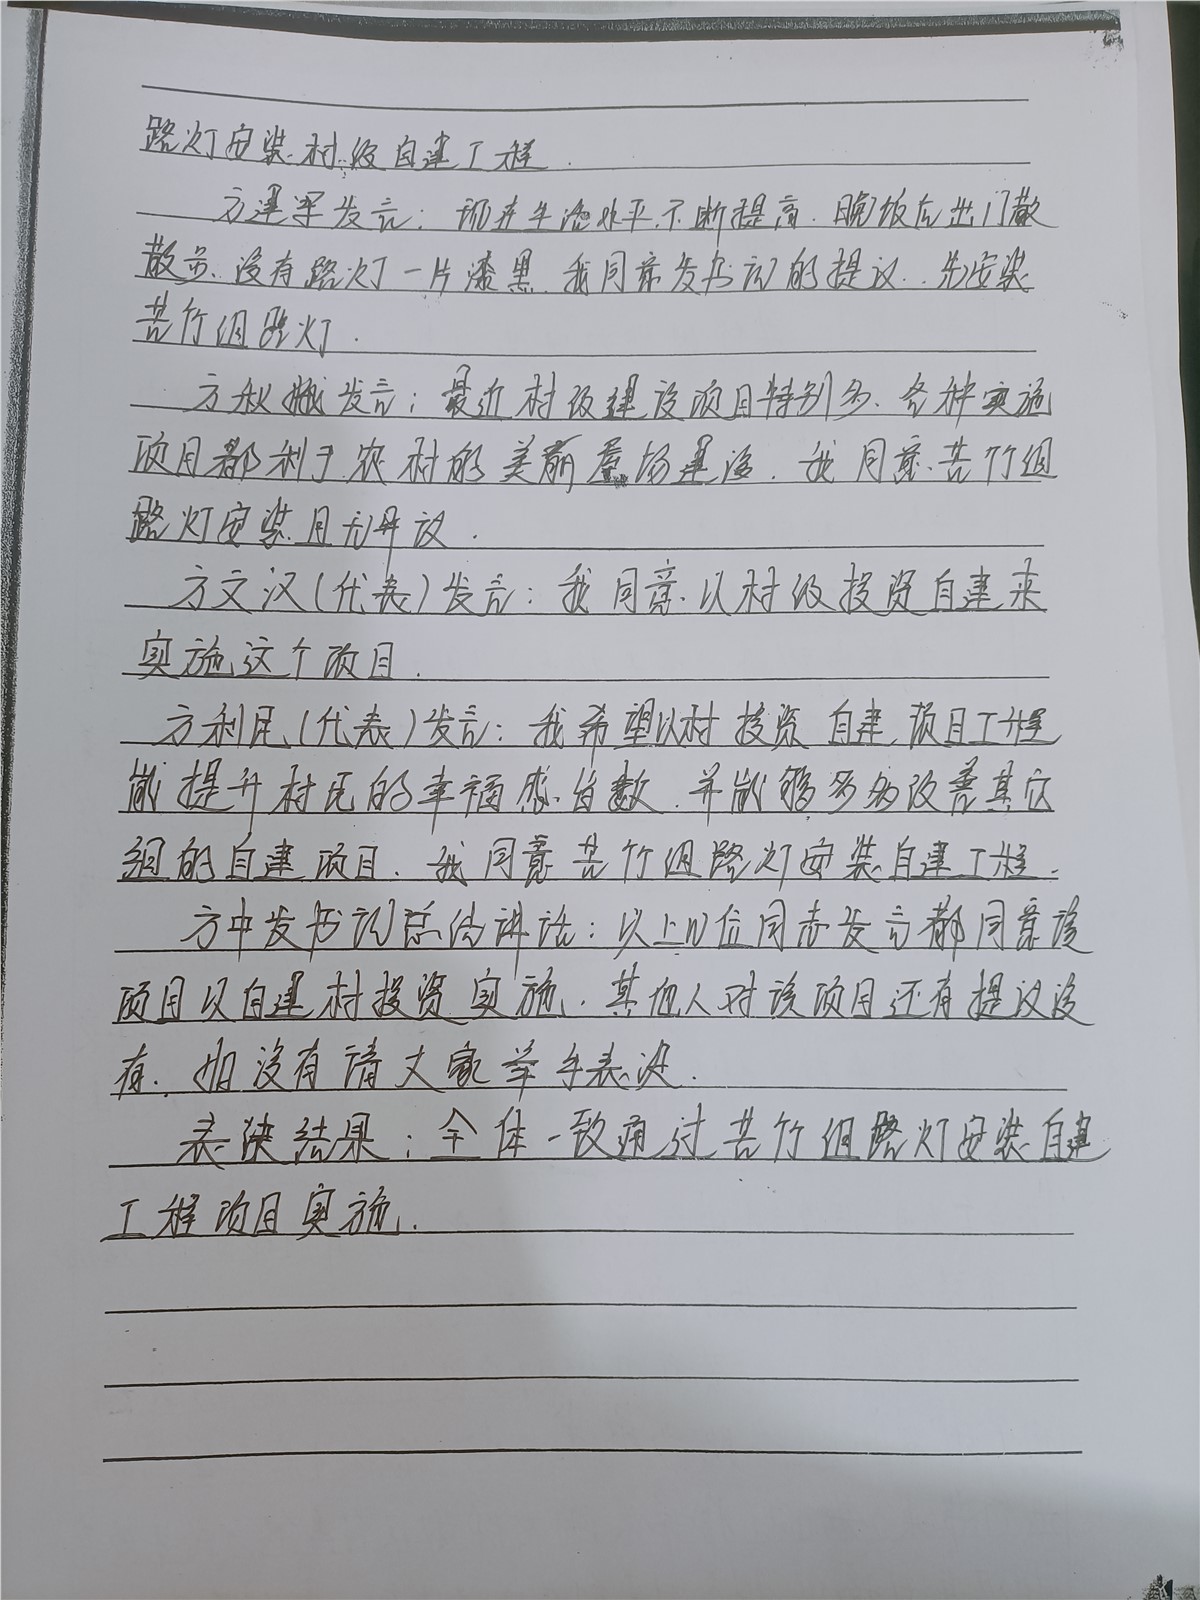 路灯安装村级自建工程.
方建军发言：现在生活水平不断提高.晚饭后出门散
散步、没有路灯一片漆黑.我同意发书记的提议.先安装
苦竹组路灯.
方秋娥发言：最近村级建设项目特别多、各种实施
项目都利于农村的美丽 建设.我同意苦竹组
路灯安装
方文汉(代表)发言：我同意以村级投资自建来
实施这个项目.
方利民(代表)发言：我希望以村投资自建项目工程
能提升村民的幸福感指数.并能够多多改善其它
组的自建项目.我同意苦竹组路灯安装自建工程.
方中发书记总结讲话：以上几位同志发言都同意该
项目以自建村投资实施.其他人对该项目还有提议没
有.如没有请大家举手表决.
表决结果：全体一致通过苦竹组路灯安装自建
工程项目实施.